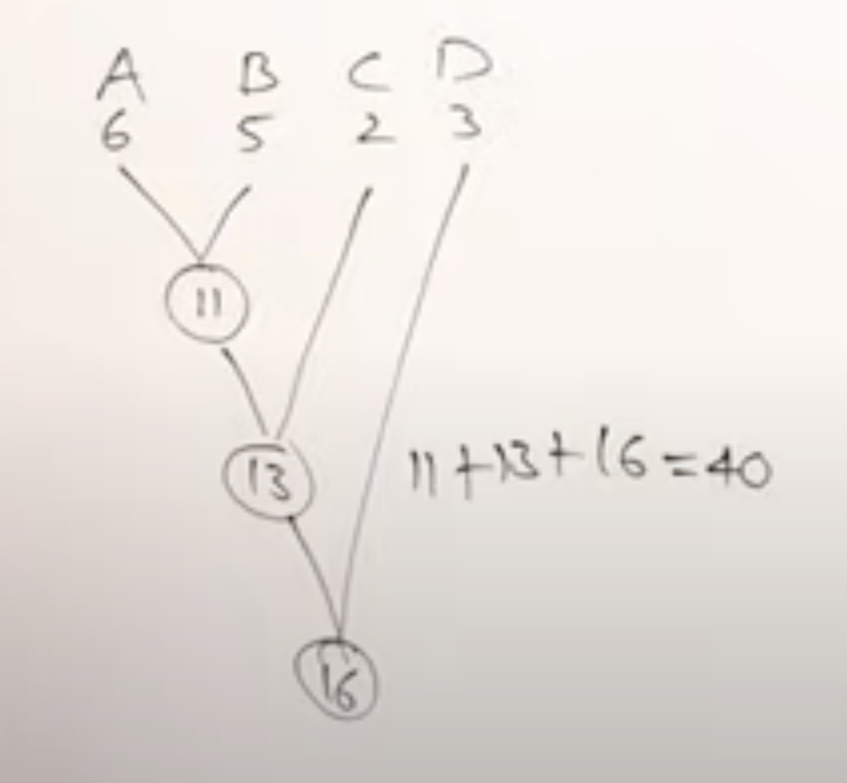 A B C D
6 5 2 3
11
13
11+13+16=40
16